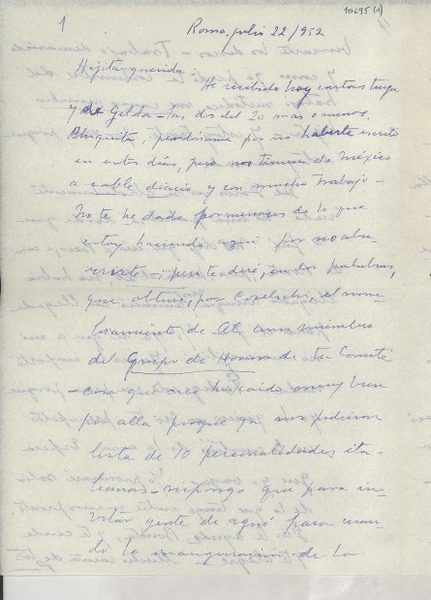 10695 (1)
1
Roma, julio 22/952
Hijita querida:
He recibido hoy cartas tuya
y de Gilda - las dos del 20 mas o menos.
Chiquita, perdóname por no haberte escrito
en estos días, pero nos tienen de México
a cable diario, y en mucho trabajo -
No te he dado pormenores de lo que
estoy haciendo aquí por no abu-
rrirte; pero te diré, en dos palabras,
que obtuve, por el nom-
bramiento de como miembro
del Grupo de Honor de Comité
- cosa que creo ha caido muy bien
por allá porque ya nos pidieron
lista de 70 personalidades ita-
lianas - supongo que para in-
vitar gente de aquí para cuan-
do la inauguración de la